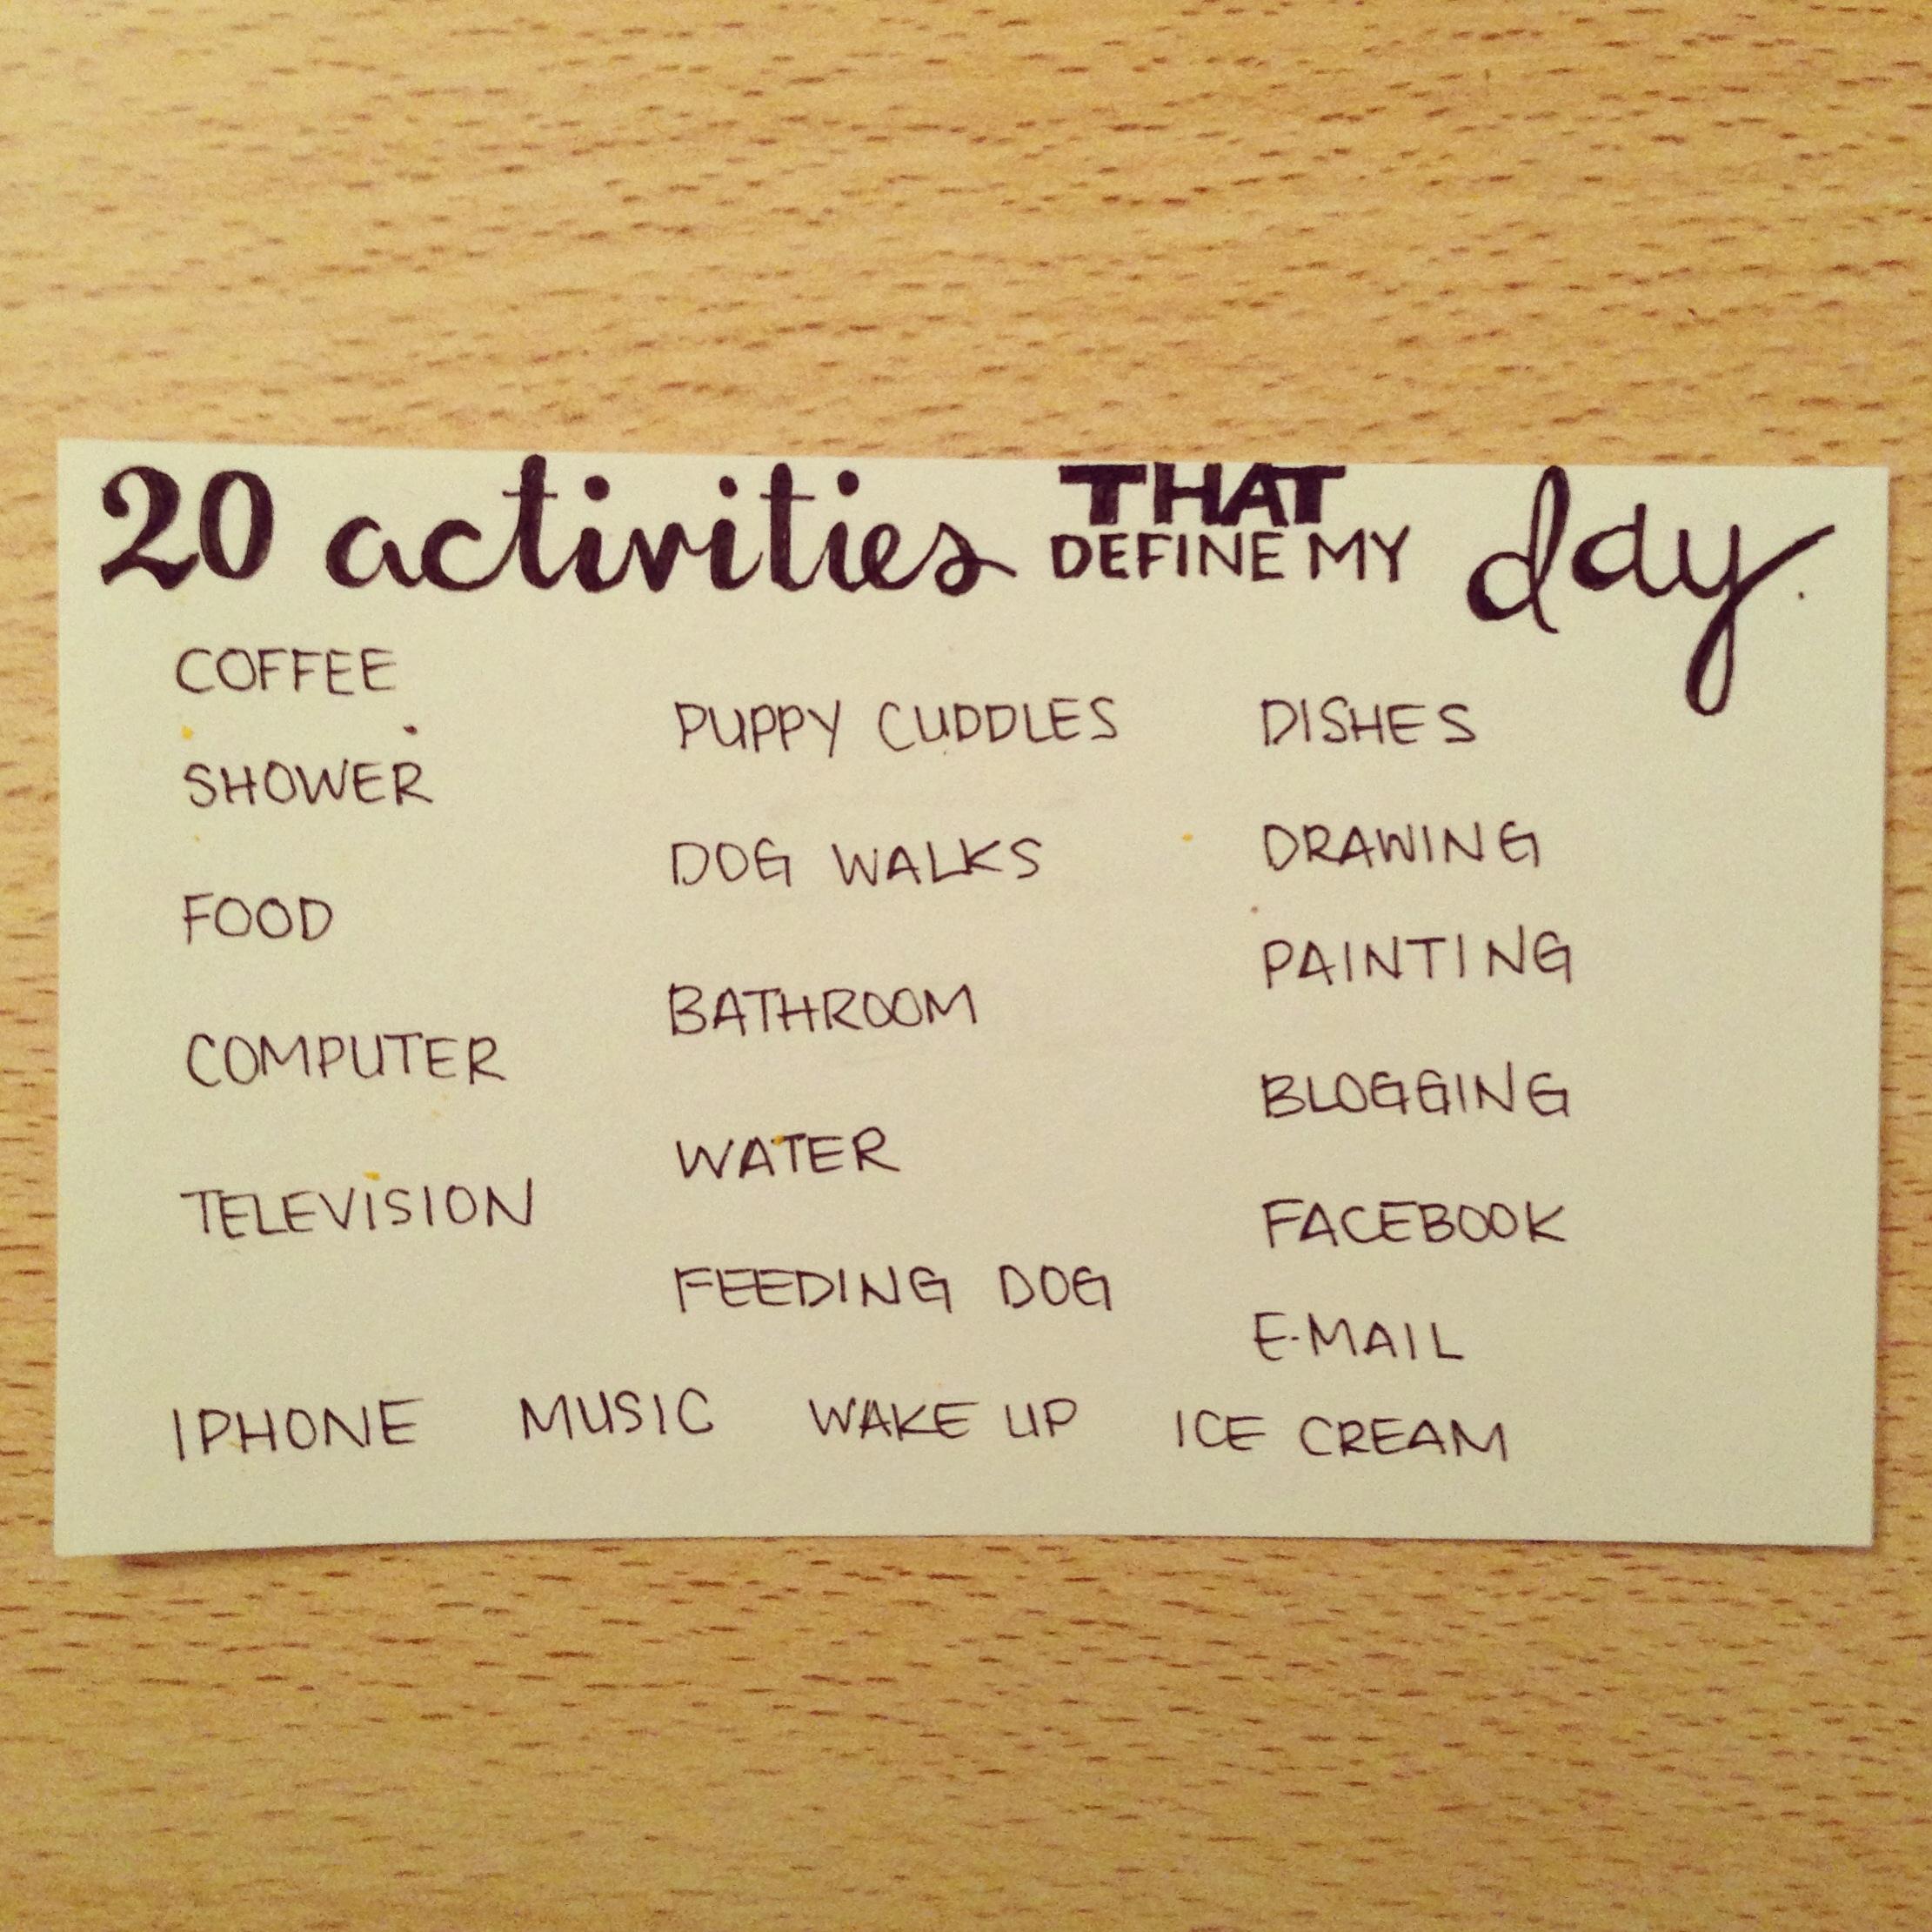 20 activities THAT DEFINE MY day.
COFFEE
SHOWER
FOOD
COMPUTER
TELEVISION
PUPPY CUDDLES
DOG WALKS
BATHROOM
WATER
FEEDING DOG
DISHES
DRAWING
PAINTING
BLOGGING
FACEBOOK
E-MAIL
IPHONE MUSIC WAKE UP ICE CREAM